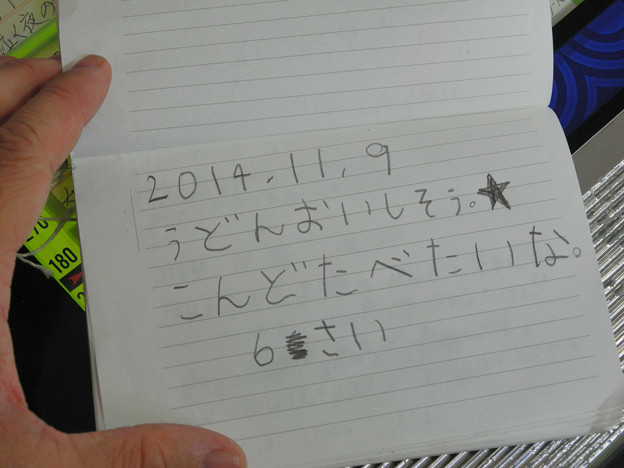 2014.11.9
うどんおいしそう。★
こんどたべたいな。
6さい
180